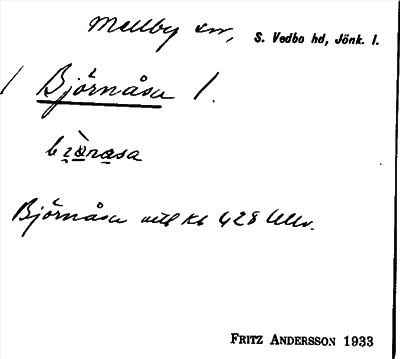 Mellby sn, S. Vedbo hd, Jönk. l.
/ Björnåsa /.
Björnåsa utl Kb 428 Ullv.
FRITZ ANDERSSON 1933